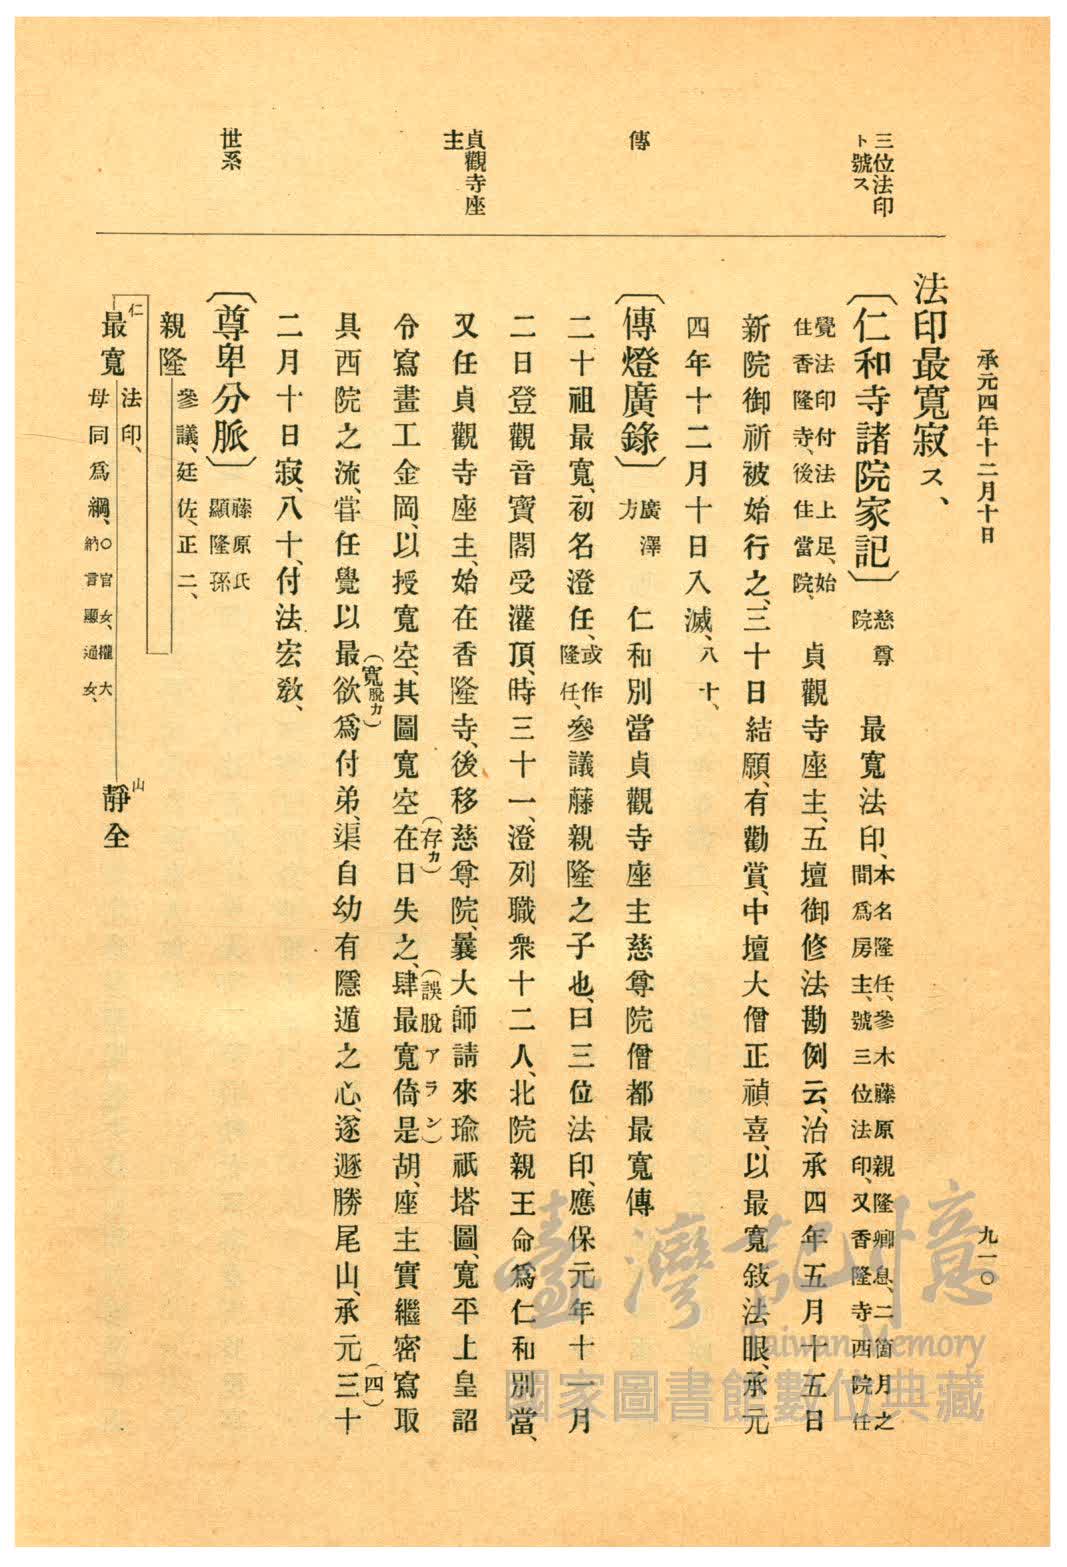 承元四年十二月十日
九一〇
三位法印
ト號ス
傳
貞觀寺座
主
世系
法印最寬寂ス、
〔仁和寺諸院家記〕慈尊院 最寬法印、本名隆任、參木藤原親隆卿息、二箇月之間爲房主、號三位法印、又香隆寺西院任
覺法印付法上足、始住香隆寺、後住當院、 貞觀寺座主、五壇御修法勘例云、治承四年五月十五日
新院御祈被始行之、三十日結願、有勸賞、中壇大僧正禎喜、以最寬敍法眼、承元
四年十二月十日入滅、八十、
〔傳燈廣錄〕廣澤方 仁和別當貞觀寺座主慈尊院僧都最寬傳
二十祖最寬、初名澄任、或作隆任、參議藤親隆之子也、曰三位法印、應保元年十一月
二日登觀音寶閣受灌頂、時三十一、澄列職衆十二人、北院親王命爲仁和別當、
又任貞觀寺座主、始在香隆寺、後移慈尊院、曩大師請來瑜祇塔圖、寬平上皇詔
令寫畫工金岡、以授寬空、其圖寬空在(存カ)日失之、肆(誤脫アラン)最寬倚是胡、座主實繼密寫取
具西院之流、嘗任覺以最(寬脫カ)欲爲付弟、渠自幼有隱遁之心、遂遯勝尾山、承元三(四)十
二月十日寂、八十、付法宏敎、
〔尊卑分脈〕藤原氏顯隆孫
親隆 參議、廷佐、正二、
仁
最寬 法印、
母同爲綱、〇官女、權大納言顯通女、
山
靜全
臺灣記憶
Taiwan Memory
國家圖書館數位典藏